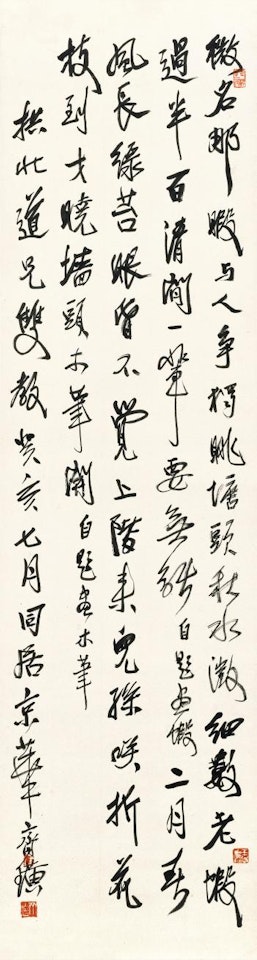 微名那暇与人争獨眺塘頭秋水澂細數老蝦
過半百清閒一輩要無能自題画蝦二月春
風長綠苔眼昏不覺上階來兒孫咲折花
枝到才曉墻頭木筆開自題画木筆
拱北道兄雙教癸亥七月同居京華齊璜